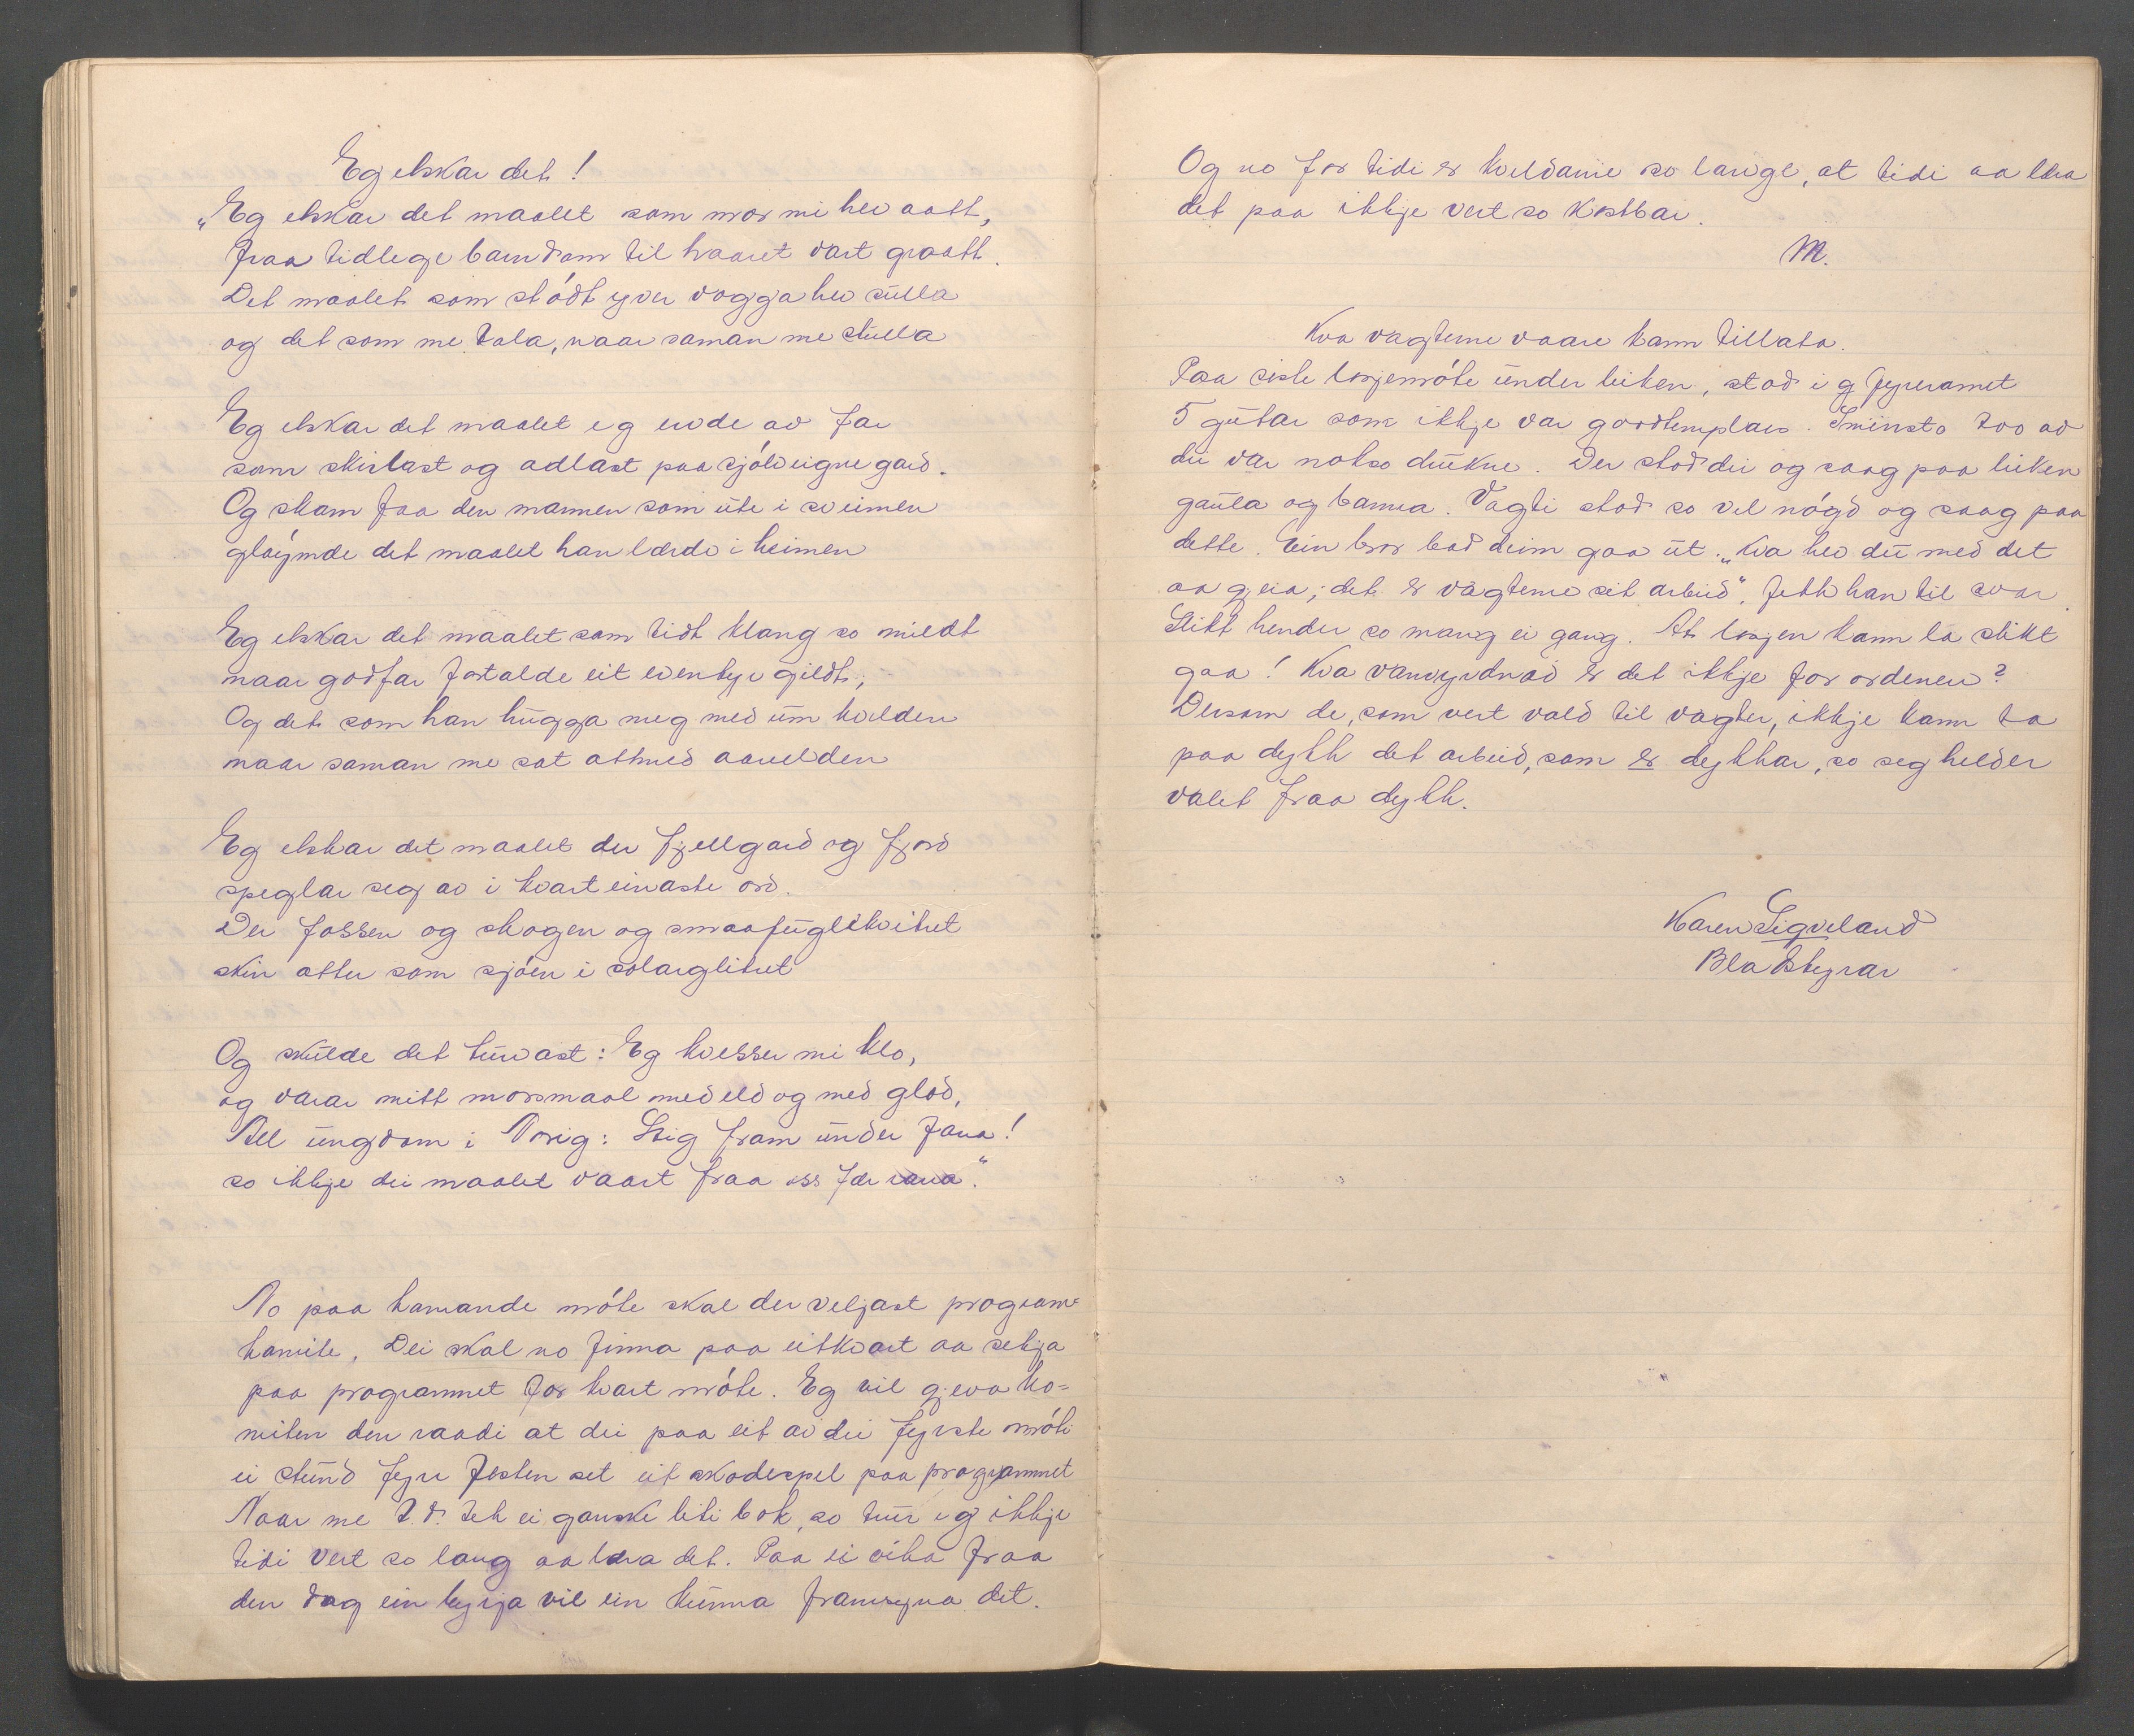 Eg elskar det!
„Eg elskar det maalet som mor mi hev aatt,
fraa tidlege barndom til haaret vart graatt.
Det maalet som stódt yver vogga hev sulla
og det som me tala, naar saman me stulla

Eg elskar det maalet eg ervde av far
som skirlast og adlast paa sjólveigne gard.
Og skam faa den mannen som ute i sveimen
gløymde det maalet han lærde i heimen

Eg elskar det maalet som tidt klang so mildt
naar godfar fortalde eit eventyr gildt,
Og det som han hugga meg med um kvelden
naar saman me sat attmed aarelden

Eg elskar det maalet der fjellgard og fjord
speglar seg av i kvart einaste ord.
Der fossen og skogen og smaafuglkvitret
skin atter som sjóen i solarglitret

Og skulde det turvast: Eg kvesser mi klo,
og varar mitt morsmaal med eld og med glod,
All ungdom i Norig: Stig fram under fana!
so ikkje dei maalet vaart fraa oss fær rana“.

No paa kamande móte skal der veljast program=
kamite. Dei skal no finna paa eitkvart aa setja
paa programmet for kvart móte. Eg vil gjeva ko=
miten den raadi at dei paa eit av dei fyrste móti
ei stund fyre festen set eit skodespel paa programmet
Naar me t.d. tek ei ganske liti bok, so trur eg ikkje
tidi vert so lang aa læra det. Paa ei vika fraa
den dag ein byrja vil ein kunna framsyna det.

Og no for tidi er kveldarne so lange, at tidi aa læra
det paa ikkje vert so kostbar.
M.

Kva vagterne vaare kann tillata.
Paa siste losjemóte under leiken, stod i fyreromet
5 gutar som ikkje var goodtemplars. Iminsto tvo av
dei var notso drukne. Der stod dei og saag paa leiken
gaula og banna. Vagti stod so vel nógd og saag paa
dette. Ein bror bad deim gaa ut. „Kva hev du med det
aa gjera; det er vagterne sit arbeid“, fekk han til svar.
Slikt hender so mang ei gang. At losjen kann la slikt
gaa! Kva vanvyrdnad er det ikkje for ordenen?
Dersom de, som vert vald til vagter, ikkje kann ta
paa dykk det arbeid, som er dykkar, so seg helder
valet fraa dykk.

Karen Sigveland
Bladstyrar